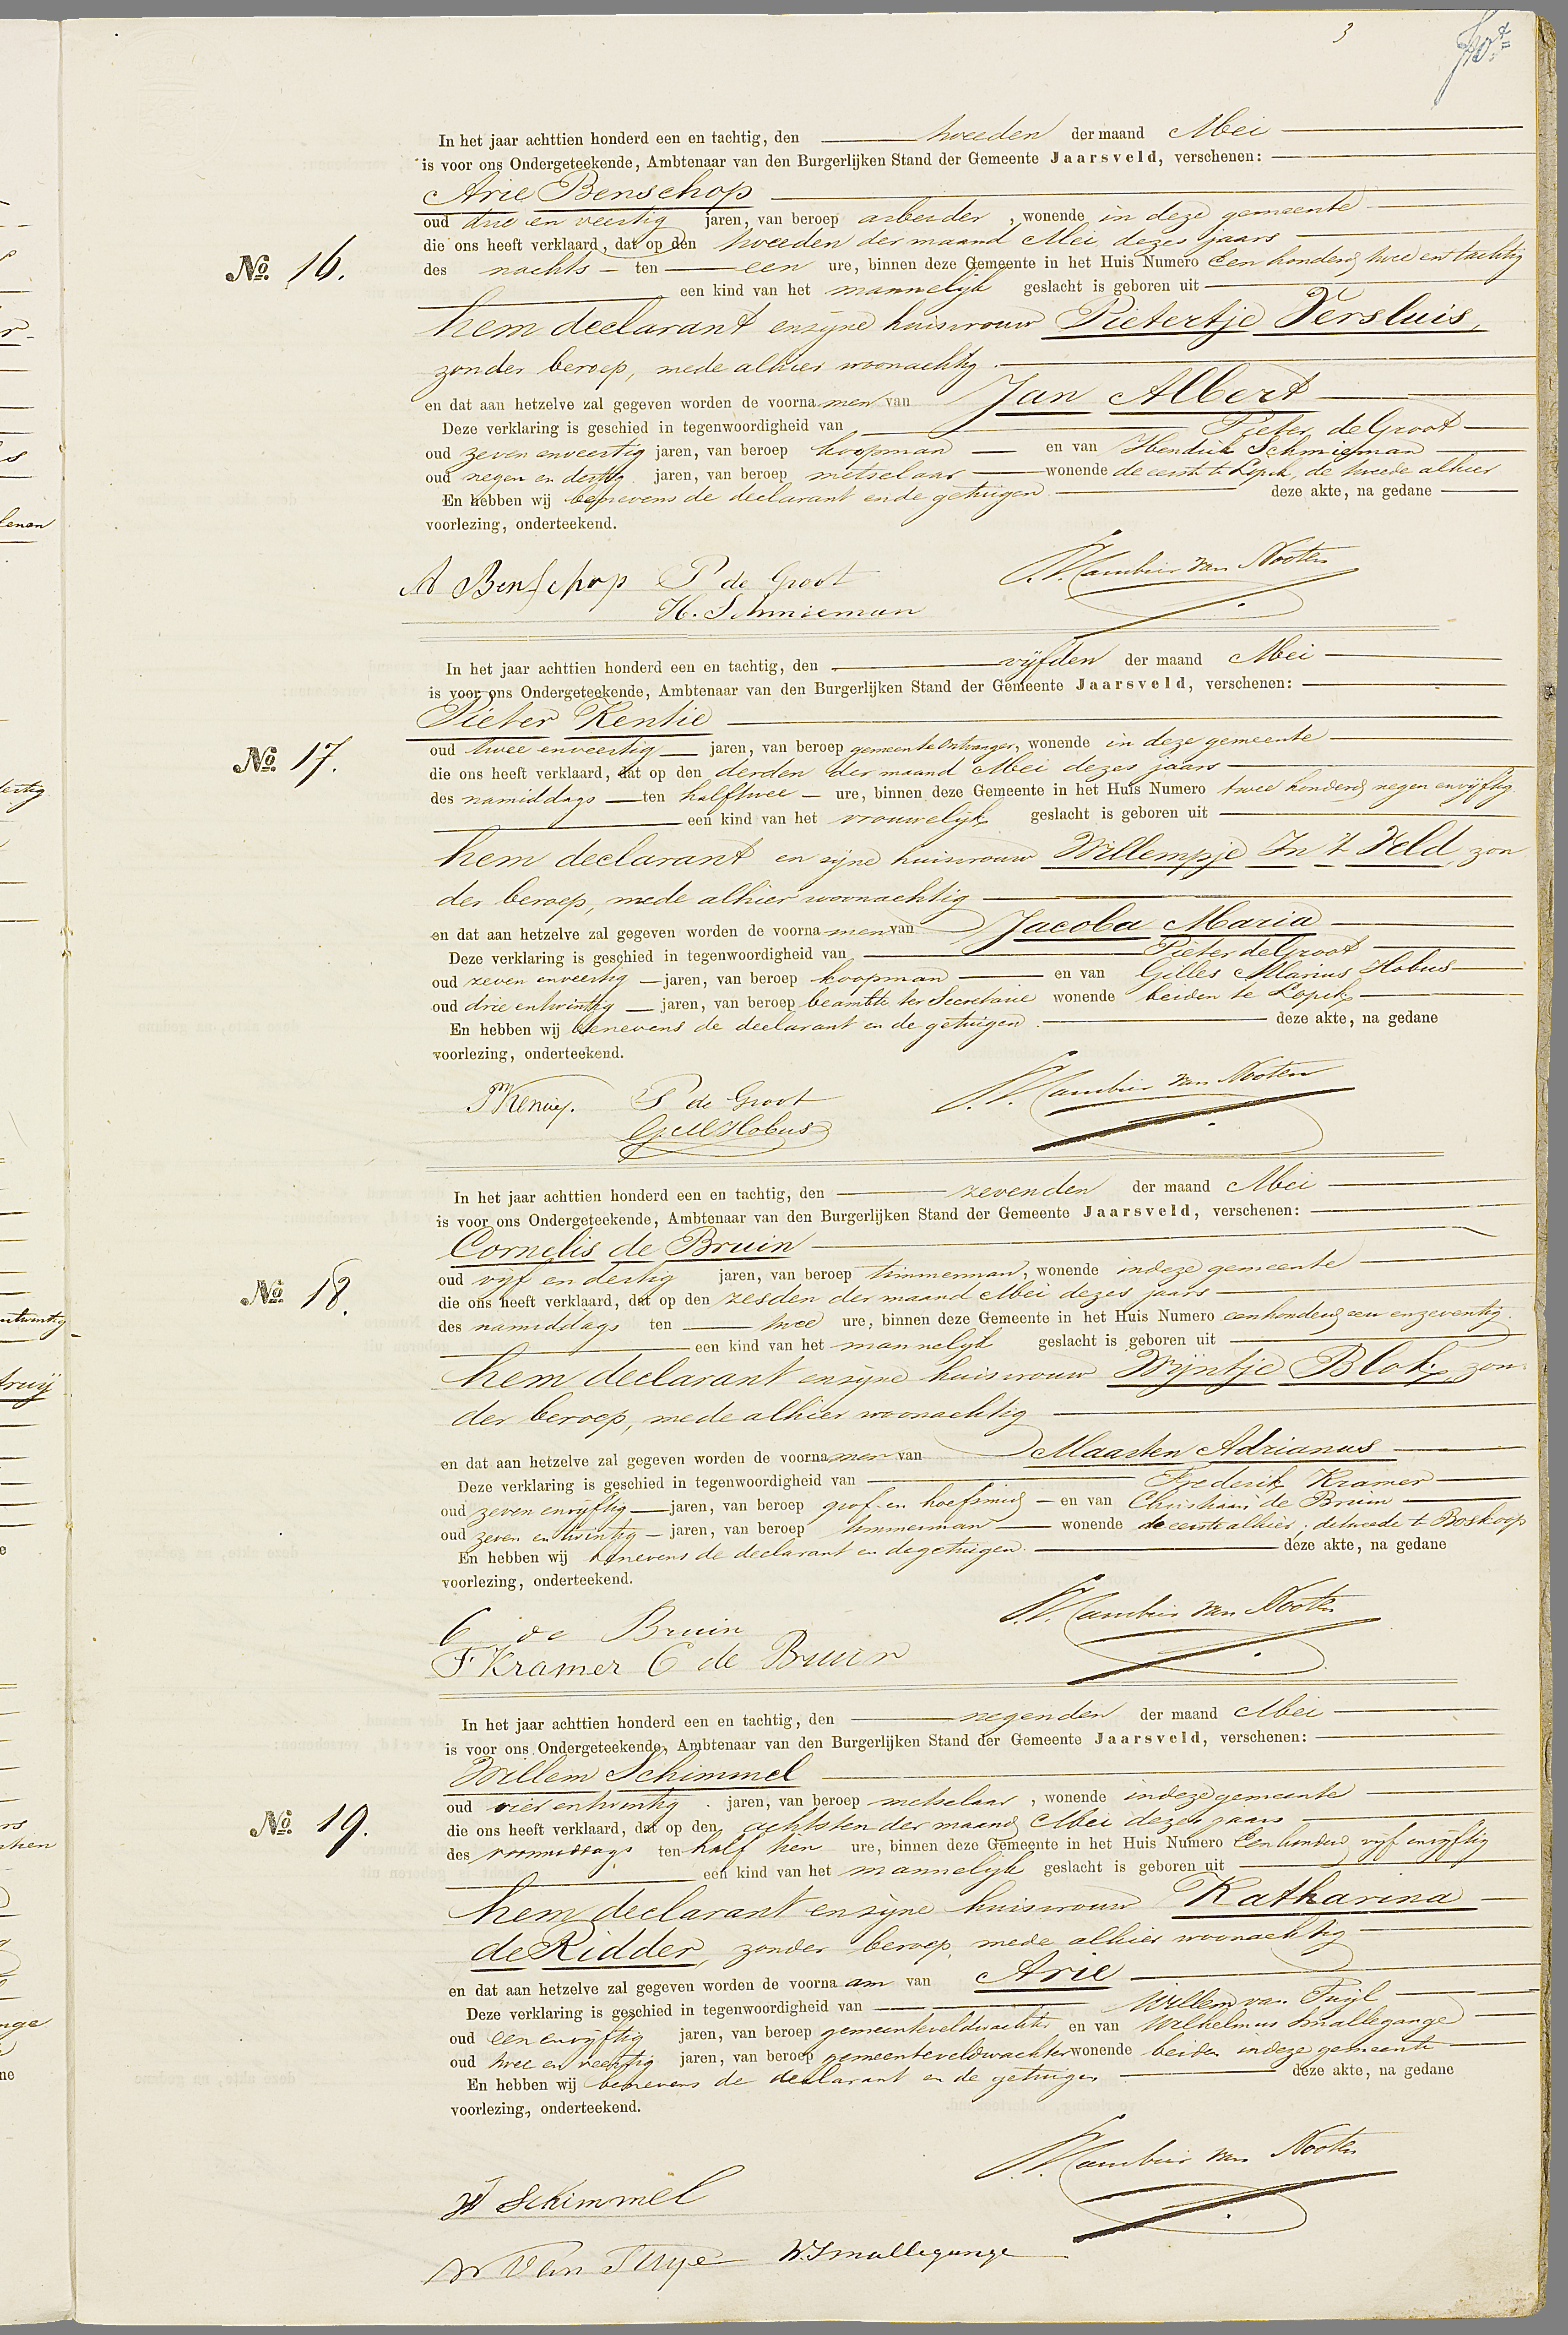 3
In het jaar achttien honderd een en tachtig, den tweeden der maand Mei
is voor ons Ondergeteekende, Ambtenaar van den Burgerlijken Stand der Gemeente Jaarsveld, verschenen:
Arie Benschop
oud drie en veertig jaren, van beroep arbeider, wonende in deze gemeente
die ons heeft verklaard, dat op den tweeden der maand Mei dezes jaars
No. 16. des nachts ten een ure, binnen deze Gemeente in het Huis Numero Een honderd twee en tachtig
een kind van het mannelijk geslacht is geboren uit
hem declarant en zijne huisvrouw Pietertje Versluis,
zonder beroep, mede alhier woonachtig.
en dat aan hetzelve zal gegeven worden de voornamen van Jan Albert
Deze verklaring is geschied in tegenwoordigheid van Pieter de Groot
oud zeven en veertig jaren, van beroep koopman en van Hendrik Schmieman
oud negen en dertig jaren, van beroep metselaar wonende de eerste te Lopik, de tweede alhier
En hebben wij benevens de declarant en de getuigen deze akte, na gedane
voorlezing, onderteekend.
A Benschop P de Groot Cambier van Nooten
H. Schmieman
In het jaar achttien honderd een en tachtig, den vijfden der maand Mei
is voor ons Ondergeteekende, Ambtenaar van den Burgerlijken Stand der Gemeente Jaarsveld, verschenen:
Pieter Kentie
No. 17. oud twee en veertig jaren, van beroep gemeente Ontvanger, wonende in deze gemeente
die ons heeft verklaard, dat op den derden der maand Mei dezes jaars
des namiddags ten half twee ure, binnen deze Gemeente in het Huis Numero twee honderd negen en vijftig
een kind van het vrouwelijk geslacht is geboren uit
hem declarant en zijne huisvrouw Willempje In 't Veld, zon
der beroep, mede alhier woonachtig
en dat aan hetzelve zal gegeven worden de voornamen van Jacoba Maria
Deze verklaring is geschied in tegenwoordigheid van Pieter de Groot
oud zeven en veertig jaren, van beroep koopman en van Gilles Marius Hobus
oud drie en twintig jaren, van beroep beambte ter Secretarie wonende beiden te Lopik
En hebben wij benevens de declarant en de getuigen. deze akte, na gedane
voorlezing, onderteekend.
P Kentie. P de Groot Cambier van Nooten
G M Hobus
In het jaar achttien honderd een en tachtig, den zevenden der maand Mei
is voor ons Ondergeteekende, Ambtenaar van den Burgerlijken Stand der Gemeente Jaarsveld, verschenen:
Cornelis de Bruin
No. 18. oud vijf en dertig jaren, van beroep timmerman, wonende in deze gemeente
die ons heeft verklaard, dat op den zesden der maand Mei dezes jaars
des namiddags ten twee ure, binnen deze Gemeente in het Huis Numero een honderd een en zeventig.
een kind van het mannelijk geslacht is geboren uit
hem declarant en zijne huisvrouw Wijntje Blok, zon
der beroep, mede alhier woonachtig
en dat aan hetzelve zal gegeven worden de voornamen van Maarten Adrianus
Deze verklaring is geschied in tegenwoordigheid van Frederik Kramer
oud zeven en vijftig jaren, van beroep grof en hoefsmid en van Christiaan de Bruin
oud zeven en twintig jaren, van beroep timmerman wonende de eerste alhier, de tweede te Boskoop
En hebben wij benevens de declarant en de getuigen. deze akte, na gedane
voorlezing, onderteekend.
C de Bruin Cambier van Nooten
F Kramer C de Bruin
In het jaar achttien honderd een en tachtig, den negenden der maand Mei
is voor ons Ondergeteekende, Ambtenaar van den Burgerlijken Stand der Gemeente Jaarsveld, verschenen:
Willem Schimmel
oud vier en twintig jaren, van beroep metselaar, wonende in deze gemeente
No. 19. die ons heeft verklaard, dat op den achtsten der maand Mei dezes jaars
des voormiddags ten half tien ure, binnen deze Gemeente in het Huis Numero Een honderd vijf en vijftig
een kind van het mannelijk geslacht is geboren uit
hem declarant en zijne huisvrouw Katharina
de Ridder, zonder beroep, mede alhier woonachtig
en dat aan hetzelve zal gegeven worden de voornaam van Arie
Deze verklaring is geschied in tegenwoordigheid van Willem van Tuijl
oud een en vijftig jaren, van beroep gemeenteveldwachter en van Wilhelmus Smallegange
oud twee en veertig jaren, van beroep gemeenteveldwachter wonende beiden in deze gemeente
En hebben wij benevens de declarant en de getuigen deze akte, na gedane
voorlezing, onderteekend.
Cambier van Nooten
W Schimmel
W Van Tuyl W. Smallegange